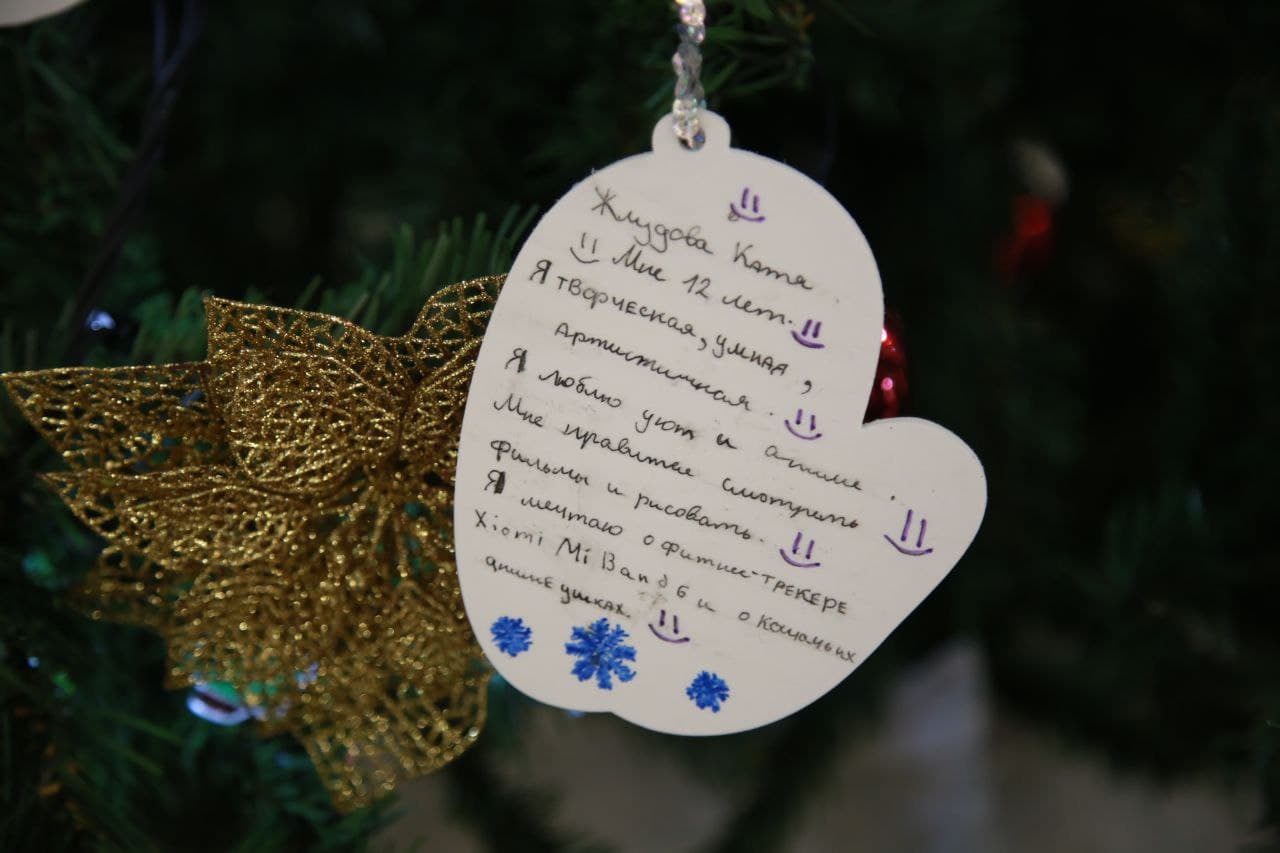 Жлудова Катя
Мне 12 лет.
Я творческая, умная,
артистичная.
Я люблю уют и аниме.
Мне нравится смотреть
фильмы и рисовать.
Я мечтаю о фитнес-трекере
Xiomi Mi Band 6 и о кошачьих
аниме ушках.